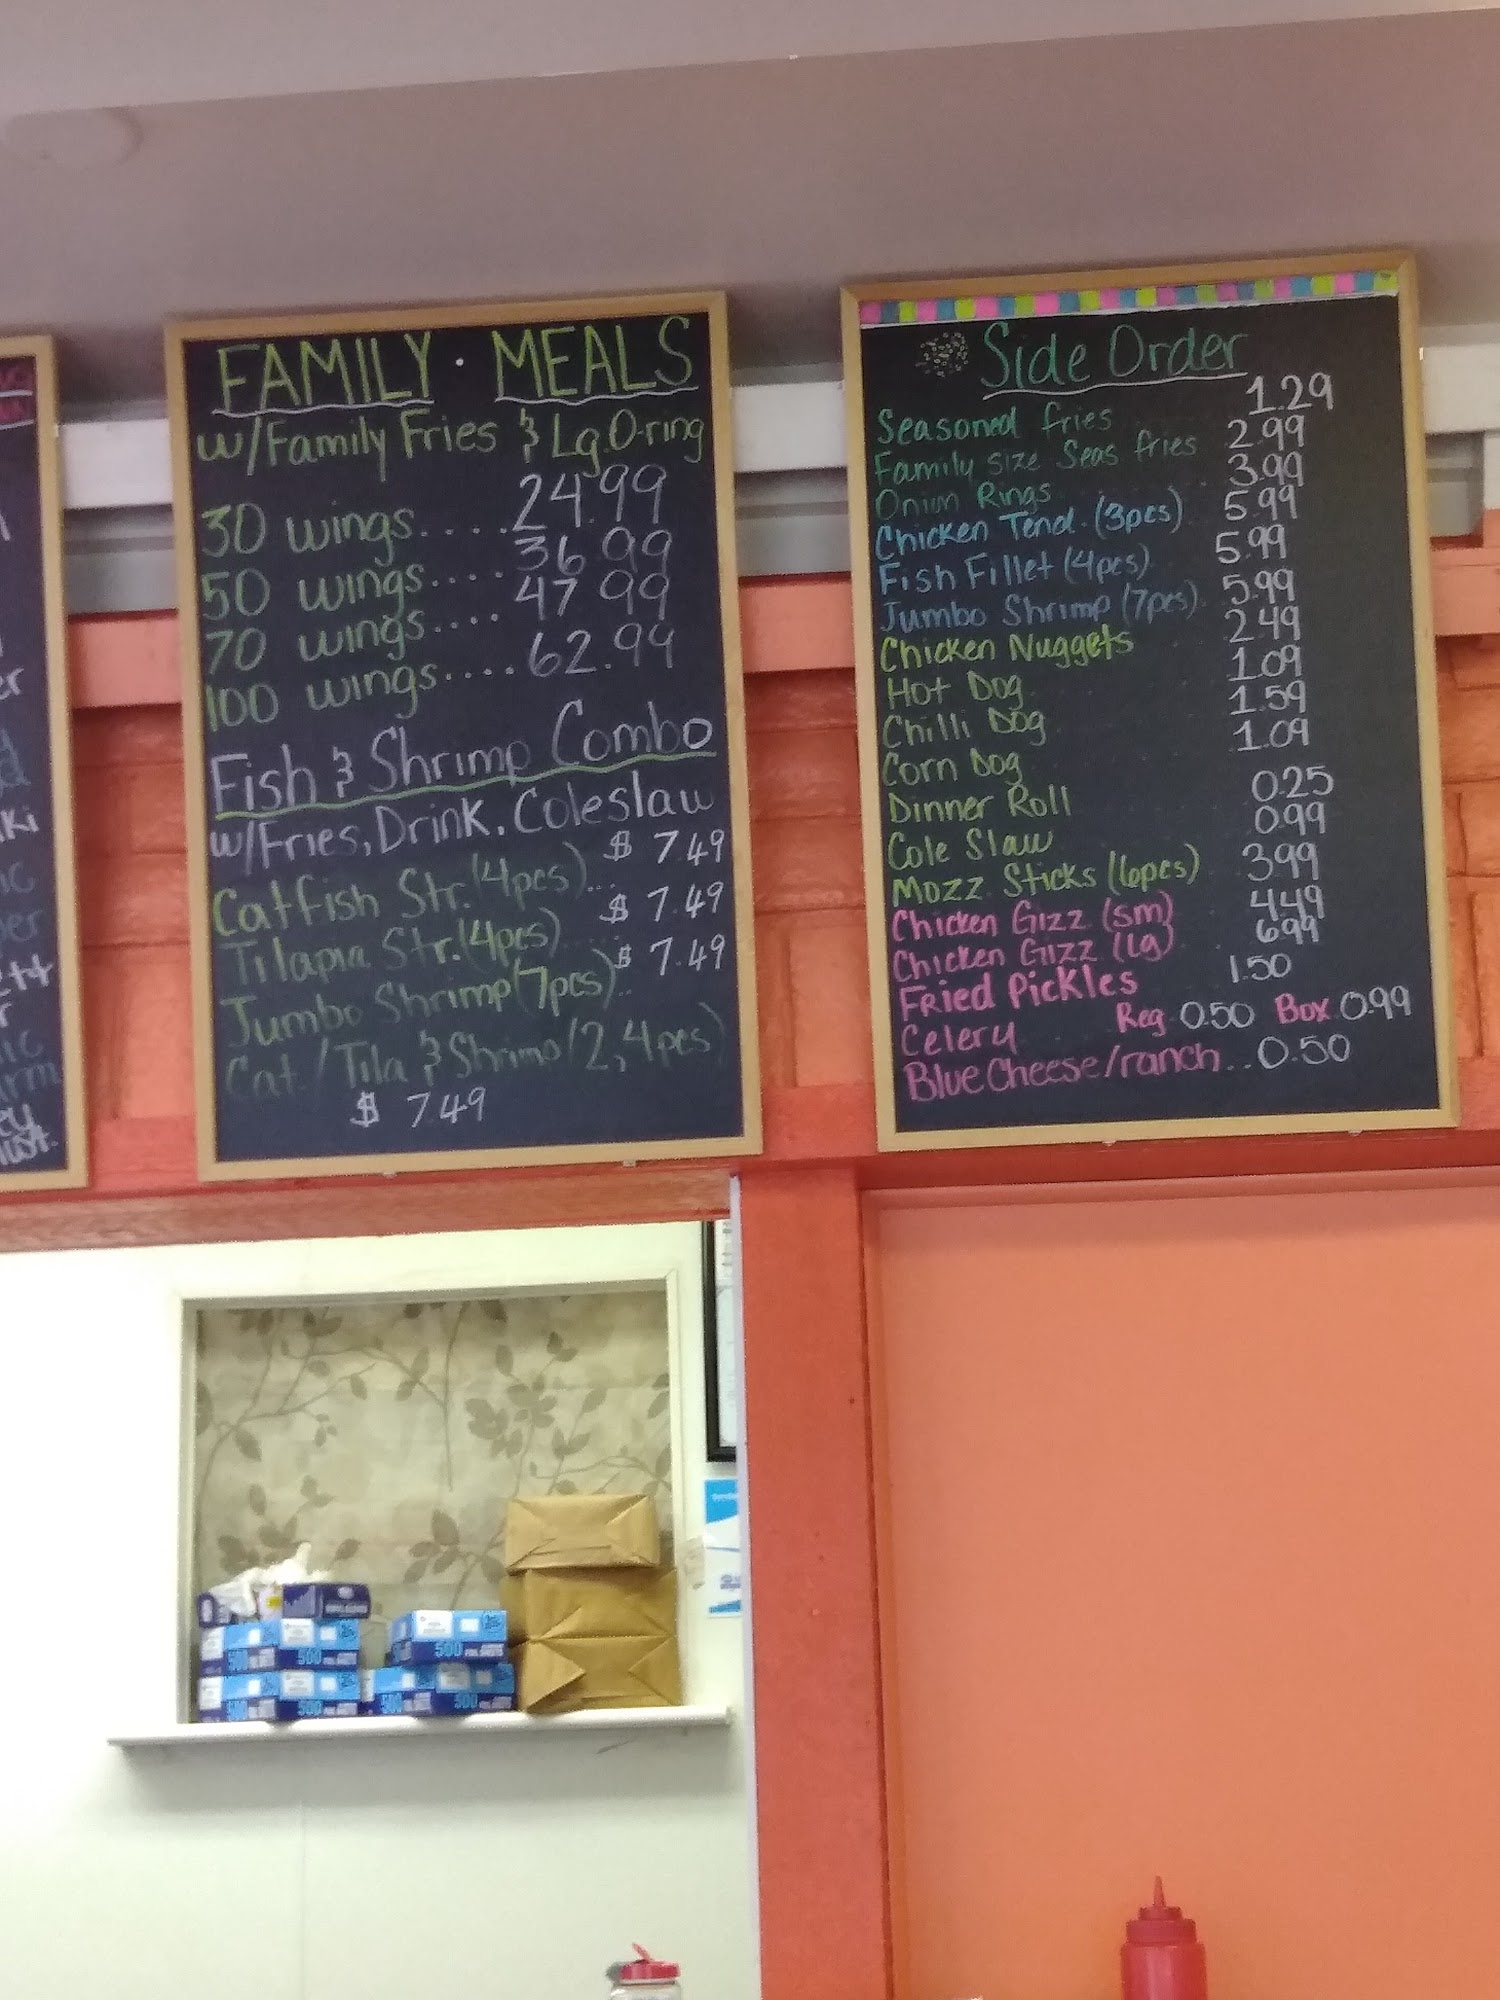 FAMILY · MEALS
w/Family Fries & Lg.O-ring
30 wings.....24.99
50 wings....36.99
70 wings....47.99
100 wings....62.99
Fish & Shrimp Combo
w/Fries, Drink, Coleslaw
Catfish Str.(4pcs)... $ 7.49
Tilapia Str.(4pcs)... $ 7.49
Jumbo Shrimp(7pcs).. $ 7.49
Cat./Tila & Shrimp(2,4pcs)
$ 7.49
Side Order
Seasoned fries 1.29
Family size Seas fries 2.99
Onion Rings 3.99
Chicken Tend. (3pcs) 5.99
Fish Fillet (4pcs) 5.99
Jumbo Shrimp (7pcs) 5.99
Chicken Nuggets 2.49
Hot Dog 1.09
Chilli Dog 1.59
Corn Dog 1.09
Dinner Roll 0.25
Cole Slaw 0.99
Mozz Sticks (6pcs) 3.99
Chicken Gizz (sm) 4.49
Chicken Gizz (lg) 6.99
Fried Pickles 1.50
Celery Reg 0.50 Box 0.99
Blue Cheese/ranch..0.50
500
500
500
500
500
500